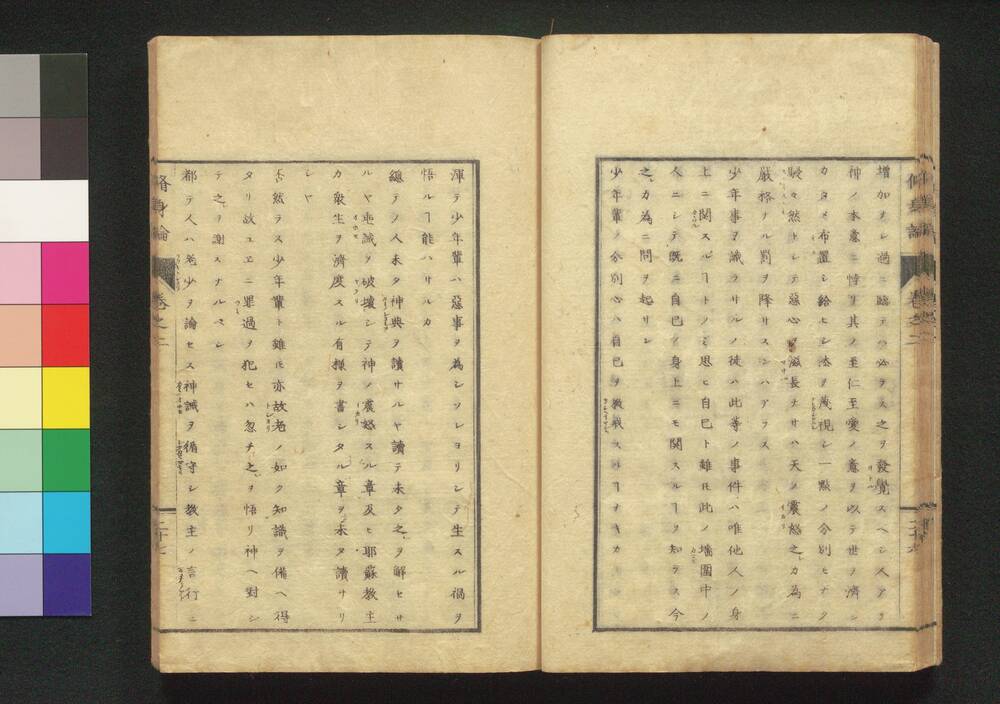 増加ナレ過ニ臨テハ必ラス之ヲ發覺スヘシ人アリ
神ノ本意ニ悖リ其ノ至仁至愛ノ意ヲ以テ世ヲ濟シ
カタメ布置シ給ヒシ法ヲ蔑視シ一點ノ分別ヒナク
然トシテ惡心ヲ滋長ナサハ天ノ震怒之カ為ニ
嚴格ナル罰ヲ降リスンハアラス
少年事ヲ識ラサルノ徒ハ此等ノ事件ハ唯他人ノ身
上ニ関スルヿトノミ思ヒ自已ト雖𪜈此ノ墻圍中ノ
人ニシテ既ニ自已ノ身上ニモ関スルヿヲ知ラス今
之カ為ニ問ヲ起リン
少年輩ノ分別心ハ自已ヲ教戒スルヿヲナキカ
渾テ少年輩ハ惡事ヲ為シソレヨリシテ生スル禍ヲ
悟ルヿ能ハサルカ
總テノ人未タ神典ヲ讀サルヤ讀テ未タ之ヲ解セサ
ルヤ誡ヲ破壊シテ神ノ震怒スル章及ヒ耶蘇教主
カ衆生ヲ濟度スル有様ヲ書シタル章ヲ未タ讀サリ
シヤ
否然ラス少年輩ト雖𪜈亦故老ノ如ク知識ヲ備ヘ得
タリ故ユエニ罪過ヲ犯セハ忽チ之ヲ悟リ神ヘ對シ
テ之ヲ謝スナルベシ
都テ人ハ老少ヲ論セス神誡ヲ循守シ教主ノ言行ニ
脩身論
卷之二
二十七